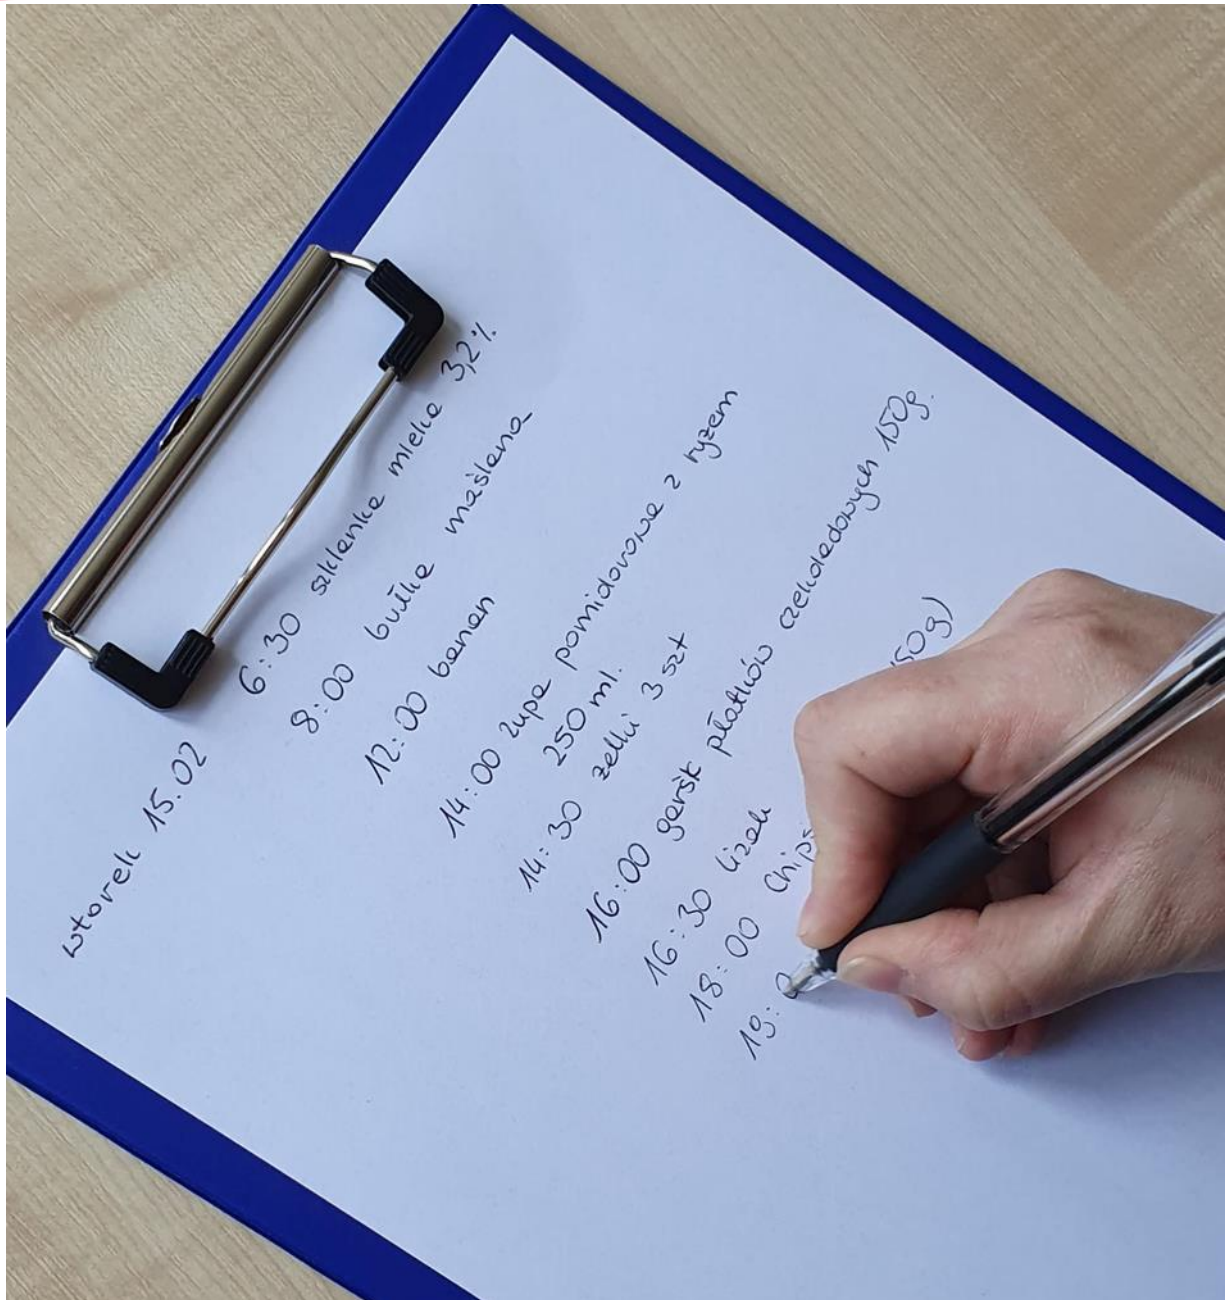 wtorek 15.02
6:30 szklanka mleka 3,2%
8:00 bułka maślana
12:00 banan
14:00 zupa pomidorowa z ryżem
250 ml.
14:30 żelki 3 szt
16:00 garść płatków czekoladowych 150g.
16:30 lizak
18:00 chips 50g)
19:0